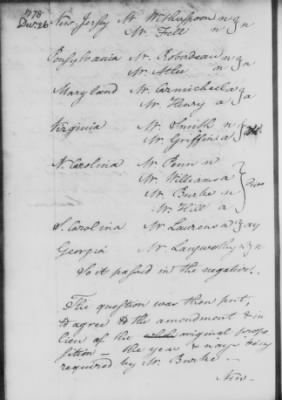 1778
Decr 26
New Jersey Mr. Witherspoon n } n
Mr. Fell n
Pensylvania Mr. Roberdeau n } n
Mr. Atlee n
Maryland Mr. Carmichael a } a
Mr. Henry a
Virginia Mr. Smith n }
Mr. Griffin a
N. Carolina Mr. Penn n
Mr. Williams a
Mr. Burke n
Mr. Hill a
S. Carolina Mr. Laurens a } ay
Georgia Mr. Langworthy n } n
So it passed in the negative.
The question was then put,
to agree to the amendment in
lieu of the original propo
sition — the yeas & nays being
required by Mr. Burke —
New